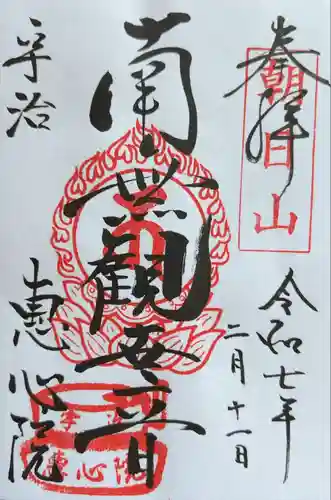 奉拝
朝日山
令和七年
二月十一日
南無観世音
宇治
恵心院
恵心院